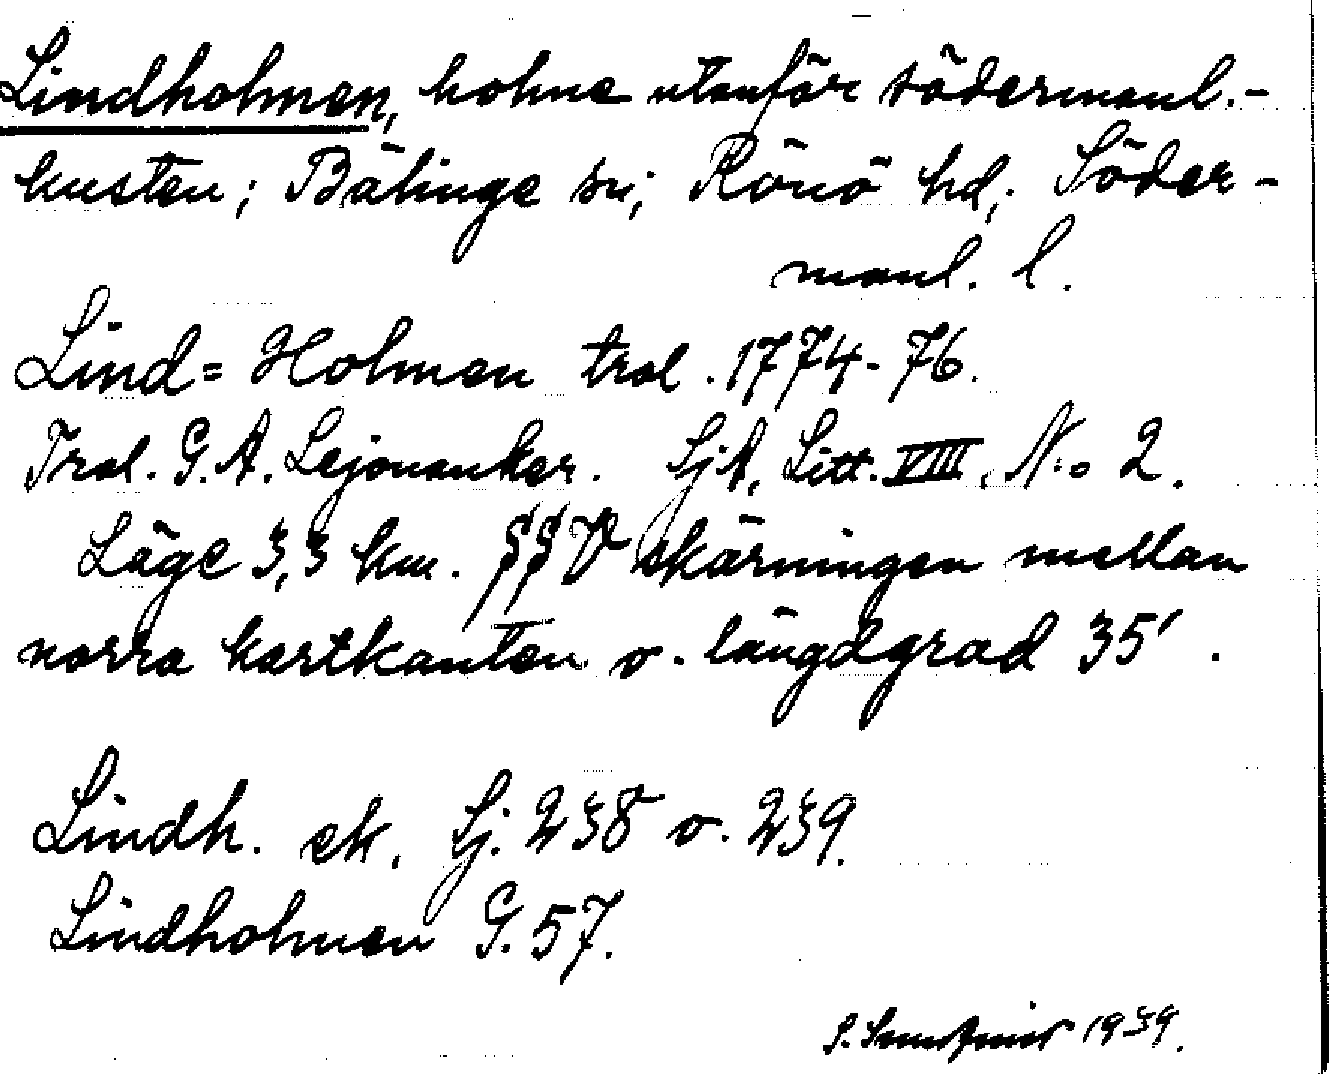 Lindholmen, holme utanför södermanl.-
kusten; Bälinge sn; Rönö hd; Söder-
manl. l.
Lind= Holmen trol. 1774-76.
Trol. G.A. Lejonanker. SjA, Litt. VIII, No 2.
Läge 3,3 km. SSV skärningen mellan
norra kartkanten o. längdgrad 35'.
Lindh. ek. Sj. 238 o. 239.
Lindholmen G. 57.
S. 1939.